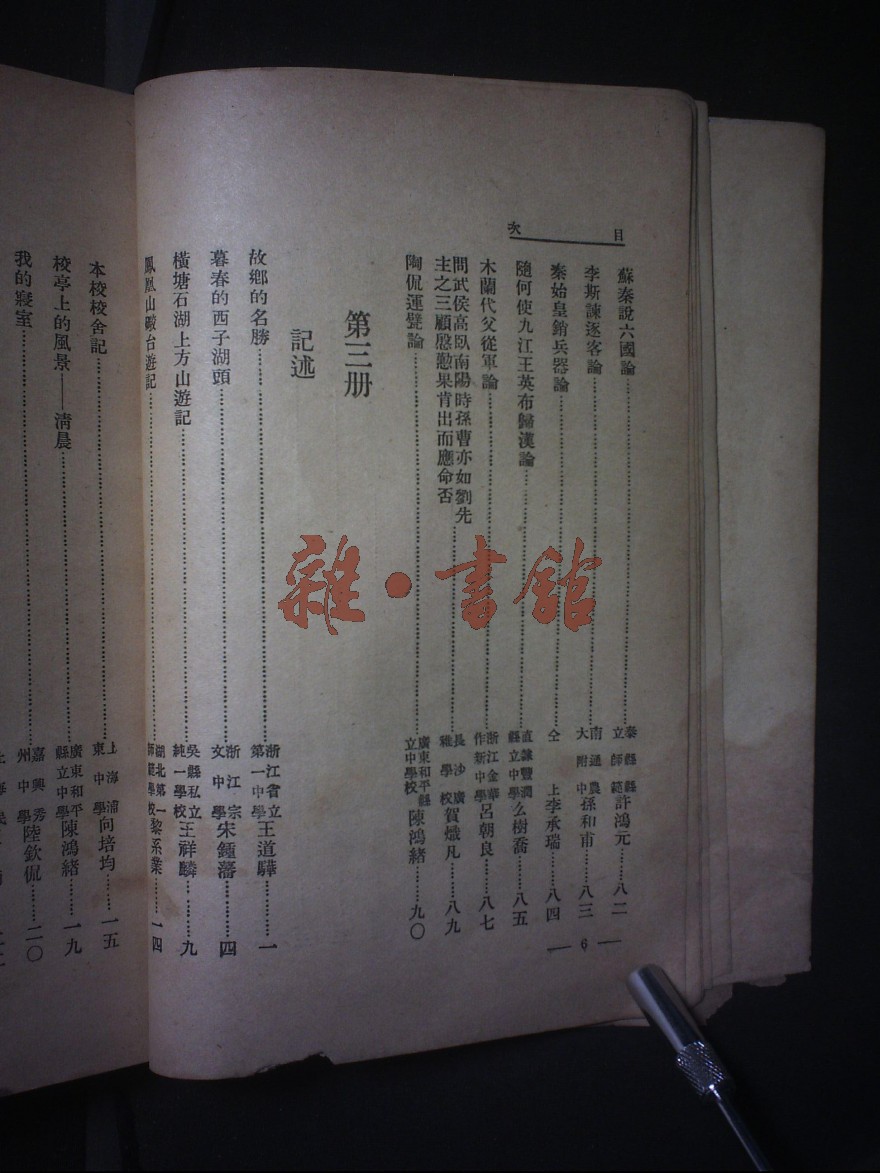 目次
蘇秦說六國論……泰縣縣立師範許鴻元……八二
李斯諫逐客論……南通農大附中孫和甫……八三
秦始皇銷兵器論……仝上李承瑞……八四
隨何使九江王英布歸漢論……直隸豐潤縣立中學么樹喬……八五
木蘭代父從軍論……浙江金華作新中學呂朝良……八七
問武侯高臥南陽時孫曹亦如劉先
主之三顧慇懃果肯出而應命否……長沙廣雅學校賀熾凡……八九
陶侃運甓論……廣東和平縣立中學校陳鴻緒……九〇
第三册
記述
故鄉的名勝……浙江省立第一中學王道驊……一
暮春的西子湖頭……浙江宗文中學宋鍾藩……四
橫塘石湖上方山遊記……吳縣私立純一學校王祥麟……九
鳳凰山礮台遊記……湖北第一師範學校黎系業……一四
本校校舍記……上海浦東中學向培均……一五
校亭上的風景——清晨……廣東和平縣立中學陳鴻緒……一九
我的寢室……嘉興秀州中學陸欽侃……二〇
6
雜·書館